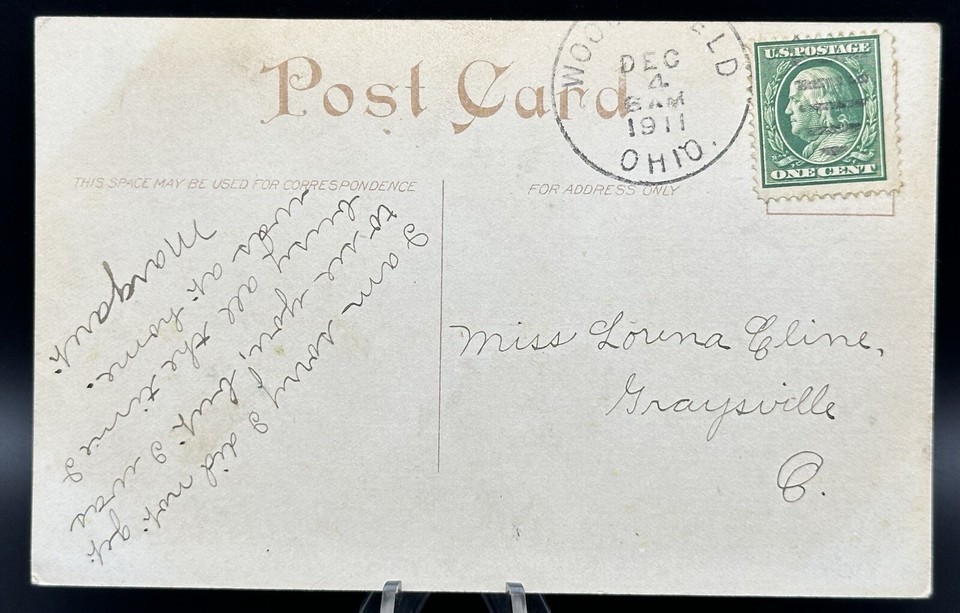 Post Card
WOODSFIELD
DEC
4
6 AM
1911
OHIO.
U.S. POSTAGE
ONE CENT
THIS SPACE MAY BE USED FOR CORRESPONDENCE
FOR ADDRESS ONLY
I am sorry I did not get
to see you, but I was
busy all the time I
was at home.
Margaret
Miss Lorena Cline,
Graysville
O.